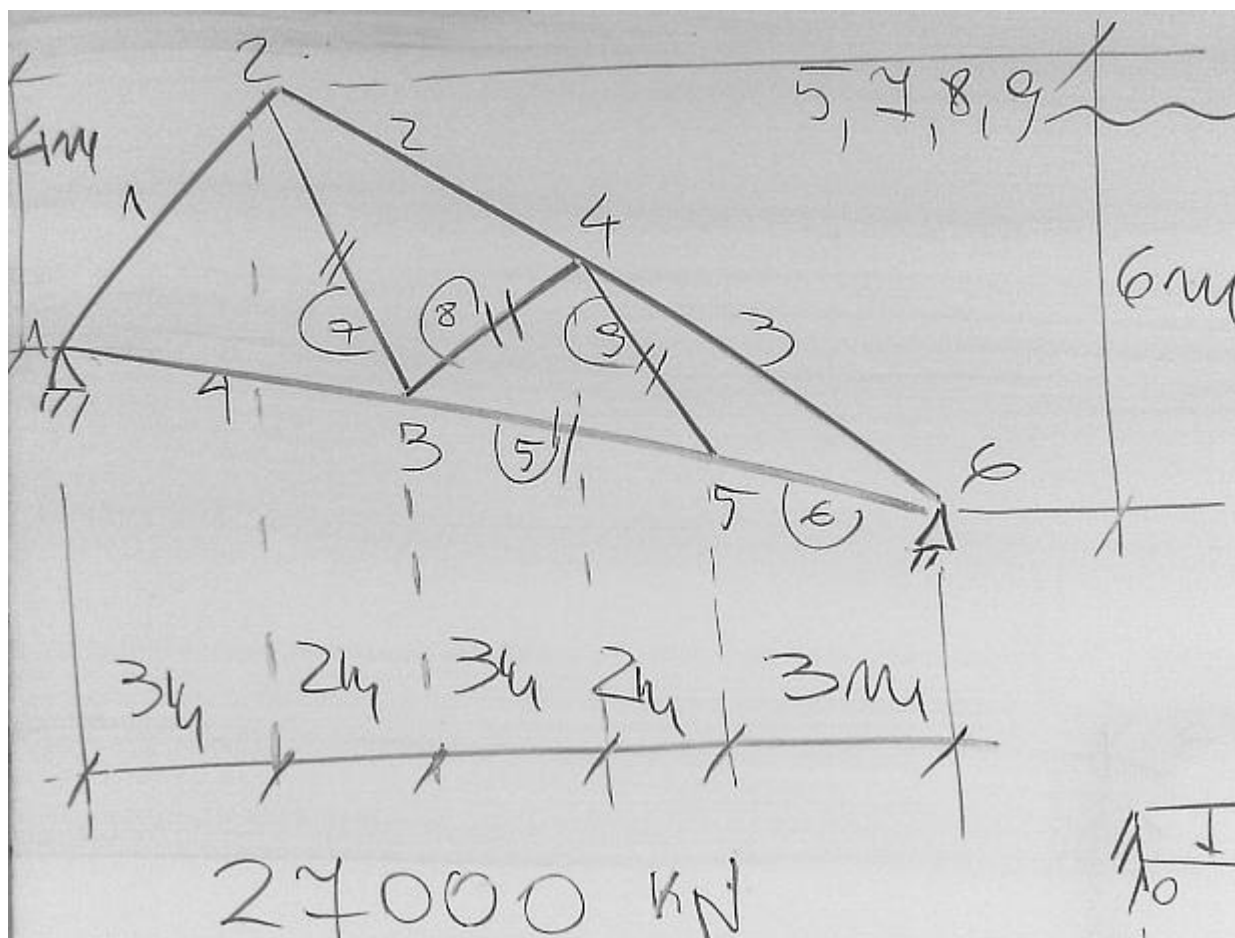 2
5, 7, 8, 9
4m
2
1
4
6m
7
8
9
3
1
4
3
5
6
5
6
3m
2m
3m
2m
3m
0
27000 kN